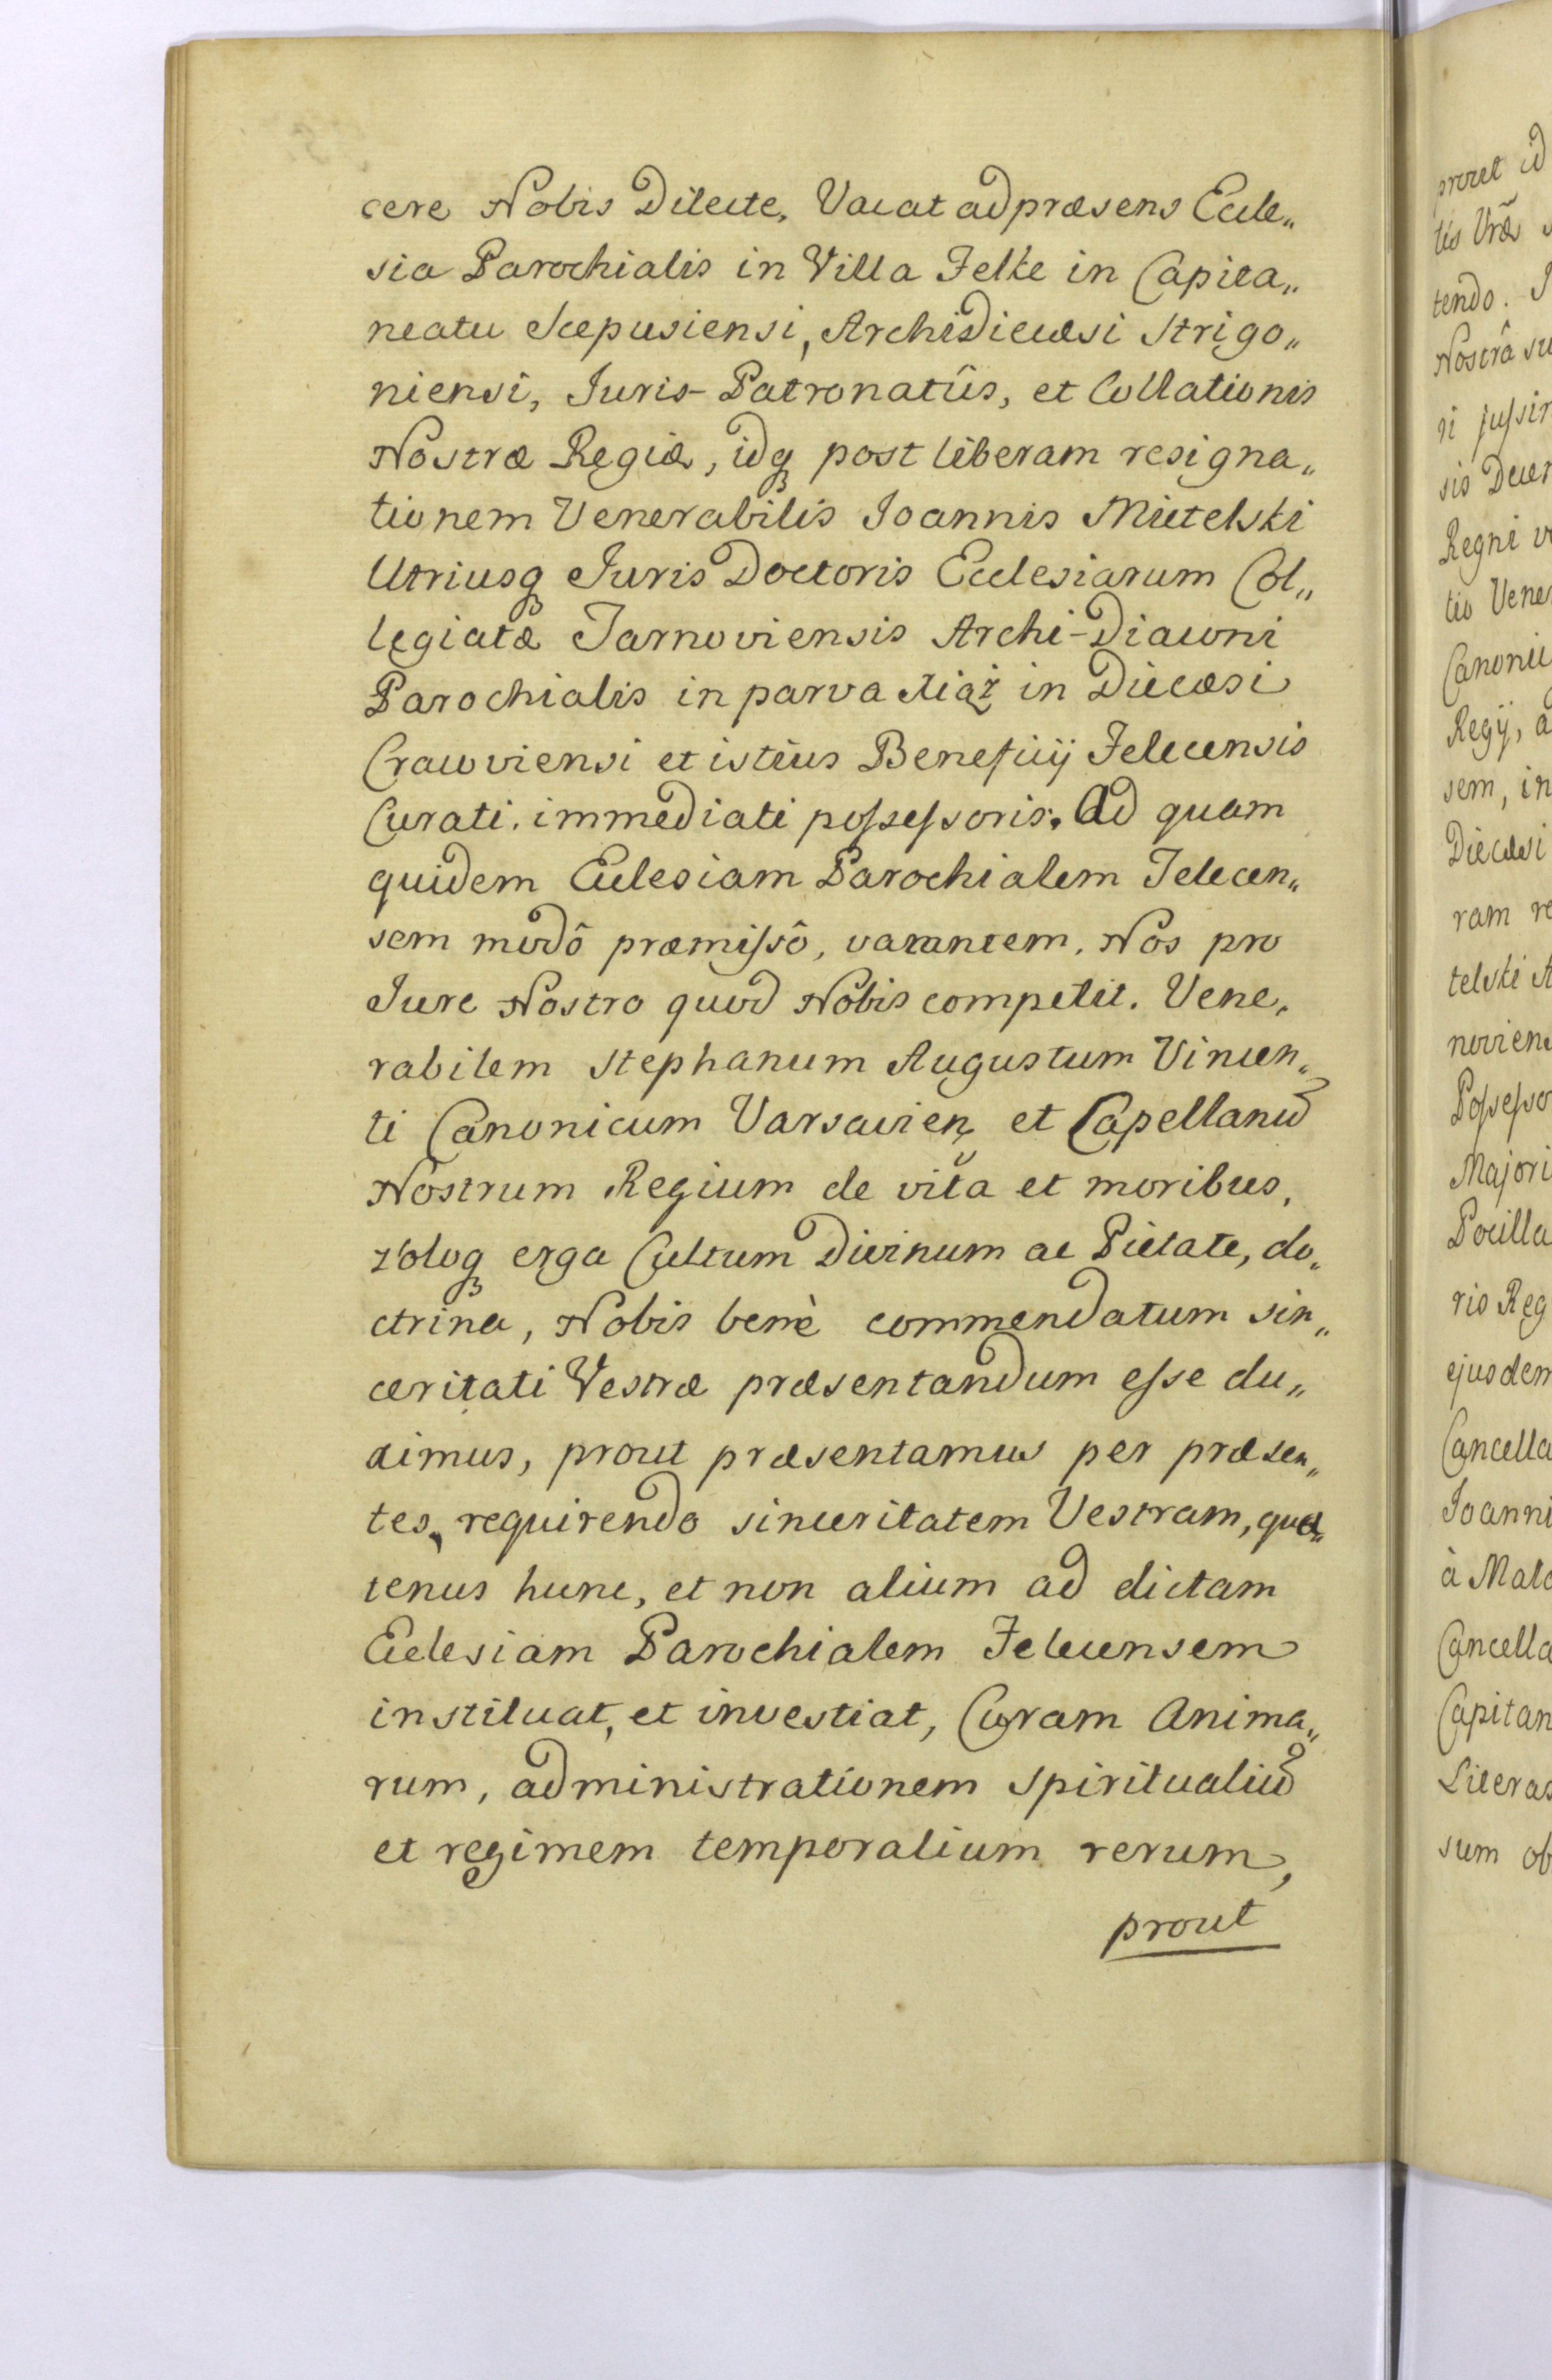 cere Nobis Dilecte, Vacat ad præsens Eccle„
sia Parochialis in Villa Felke in Capita„
neatu Scepusiensi, Archidiecæsi Strigo„
niensi, Juris-Patronatûs, et Collationis
Nostræ Regiæ, idq post liberam resigna„
tionem Venerabilis Joannis Mietelski
Utriusq Juris Doctoris Ecclesiarum Col„
legiatæ Tarnoviensis Archi-Diaconi
Parochialis in parva in Diecæsi
Cracoviensi et istius Beneficij Felecensis
Curati, immediati possessoris. Ad quam
quidem Ecclesiam Parochialem Felecen„
sem modô præmissô, vacantem, Nos pro
Jure Nostro quod Nobis competit. Vene„
rabilem Stephanum Augustum Vincen„
ti Canonicum Varsavien et Capellanū
Nostrum Regium de vita et moribus,
zeloq erga Cultum Divinum ac Pietate, do„
ctrina, Nobis benè commendatum sin„
ceritati Vestræ præsentandum esse du„
ximus, prout præsentamus per præsen„
tes, requirendo sinceritatem Vestram, qua„
tenus hunc, et non alium ad dictam
Ecclesiam Parochialem Felecensem
instituat, et investiat, Curam Anima„
rum, administrationem spiritualiū
et regimem temporalium rerum,
prout
prout id
tis Vræ
tendo.
Nostrâ su
ri jussim
sis Decem
Regni
tio Vener
Canonic
Regij, a
sem, in
Diecæsi
ram re
telski A
noviens
Possessor
Majori
Pocilla
rio Reg
ejusdem
Cancella
Joanni
à Mala
Cancella
Capitan
Literas
sum ob